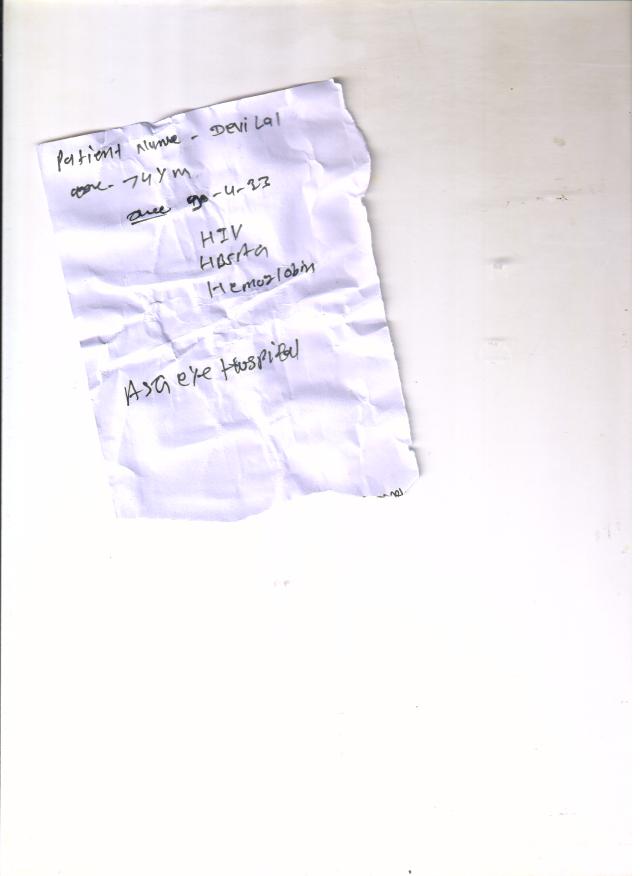 Patient Name - Devi Lal
age - 74 Y M
-4-23
HIV
HBSAG
Hemoglobin
ASG eye Hospital